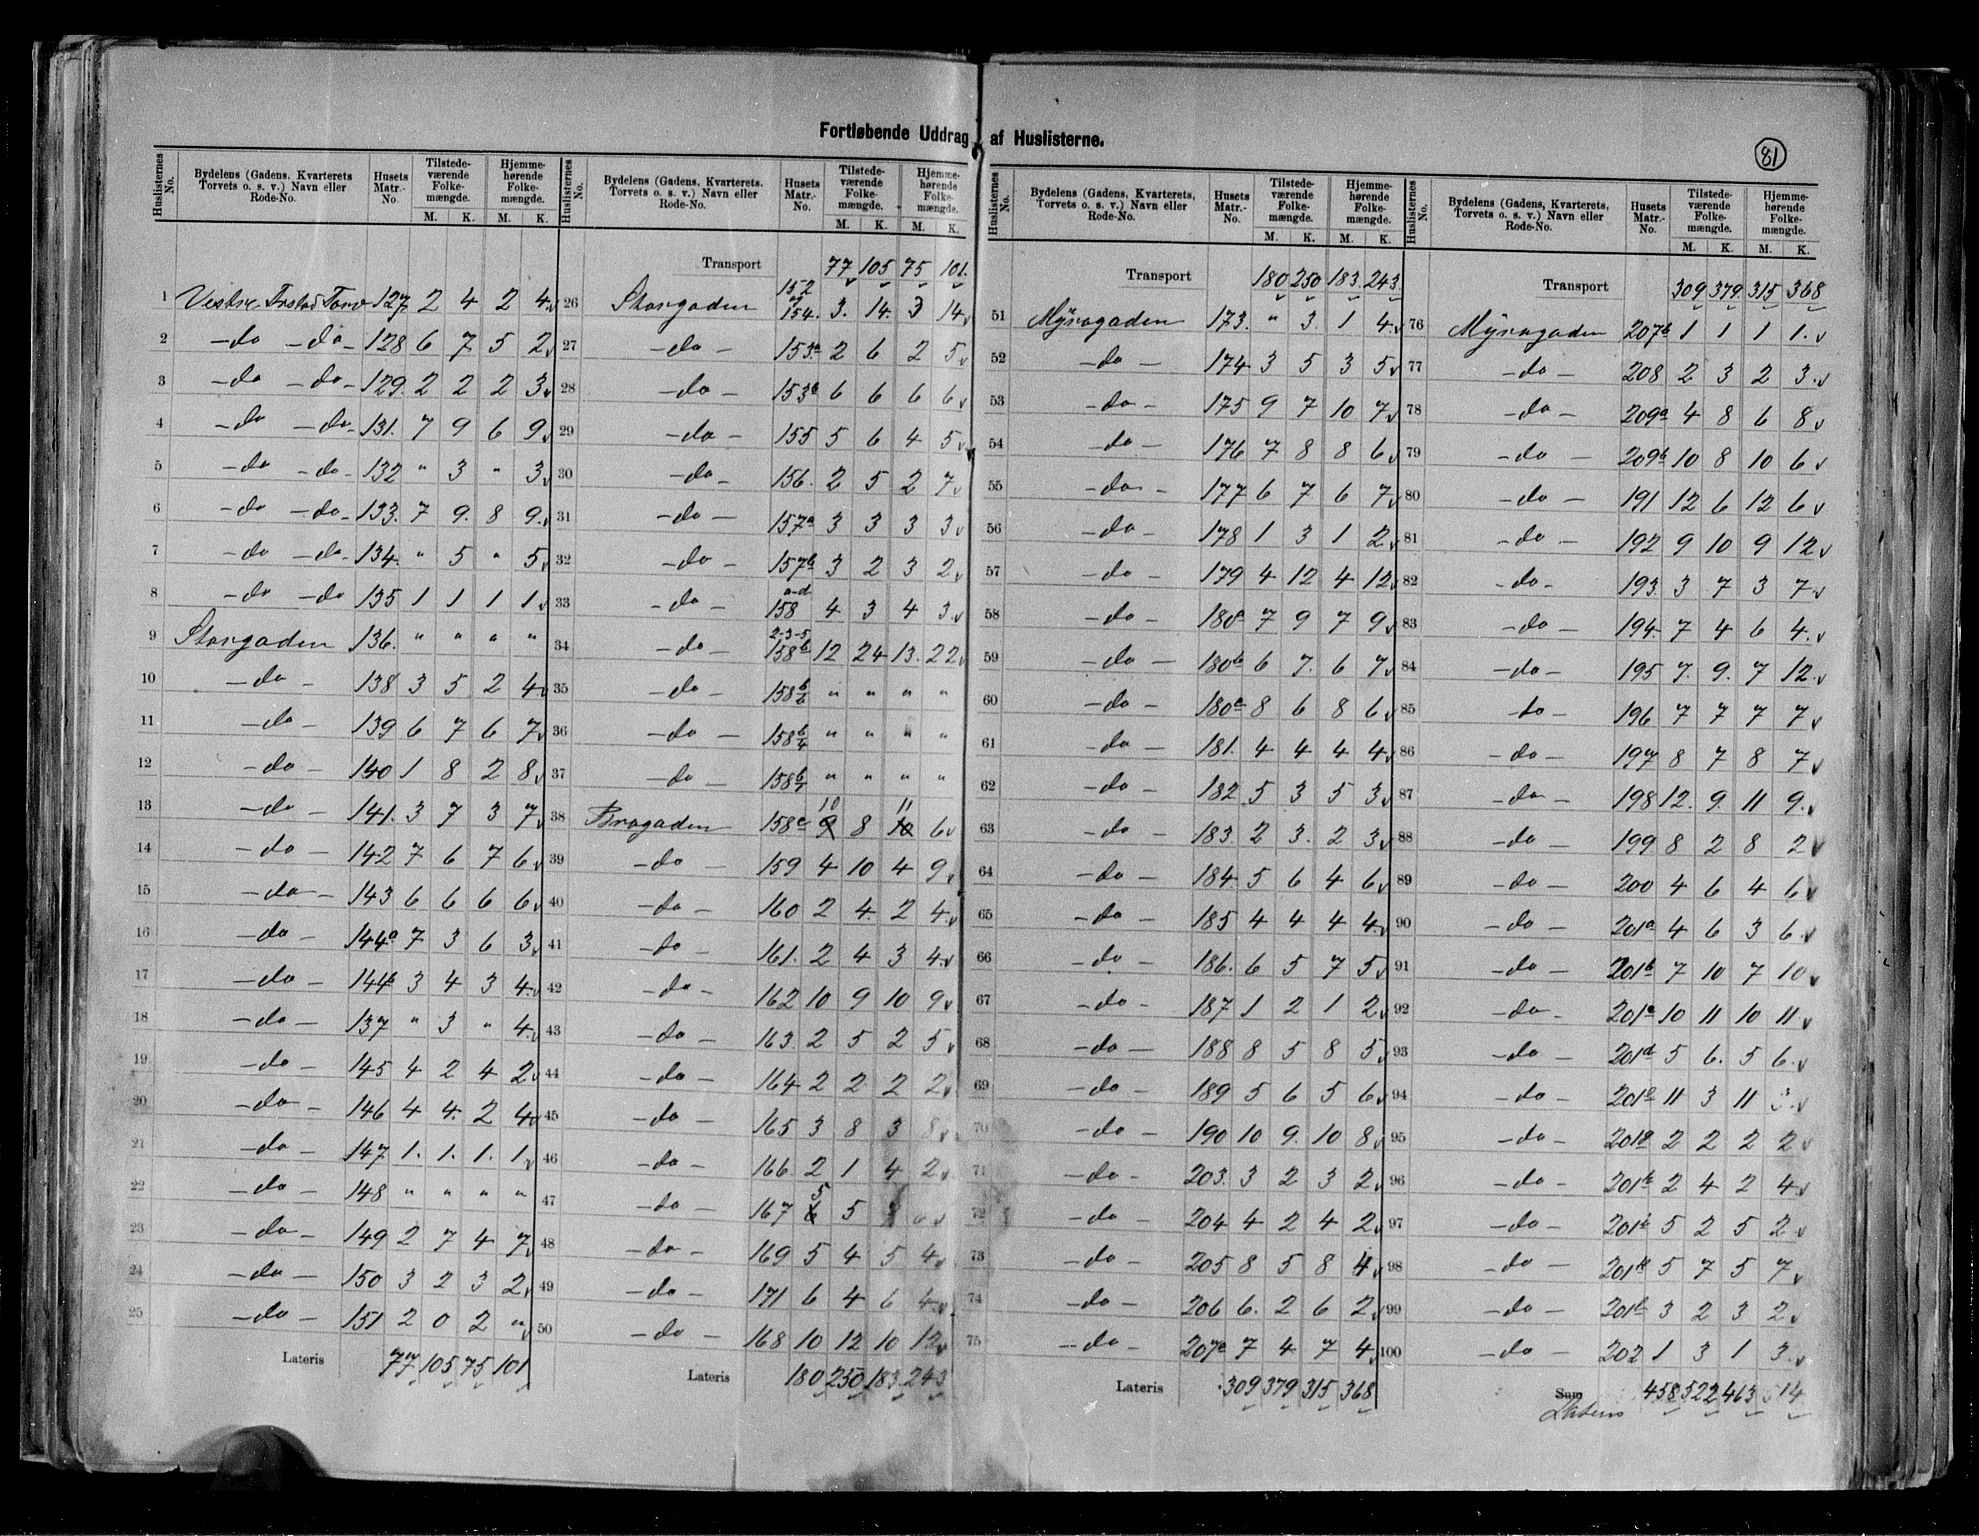 Fortløbende Uddrag af Huslisterne.
81
Huslisternes No. Bydelens (Gadens, Kvarterets, Torvets o. s. v.) Navn eller Rode-No. Husets Matr.-No. Tilstedeværende Folkemængde. M. K. Hjemmehørende Folkemængde. M. K.
1 Vestre Torv 127. 2 4 2 4
2 -do -do- 128 6 7 5 2
3 -do -do- 129. 2 2 2 3
4 -do -do- 131. 7 9 6 9
5 -do -do- 132 " 3 " 3
6 -do -do- 133. 7 9. 8 9
7 -do -do- 134. " 5 " 5
8 -do -do 135 1 1 1 1
9 Storgaden 136. " " " "
10 -do- 138 3 5 2 4
11 -do- 139 6 7 6 7
12 -do- 140 1 8 2 8
13 -do- 141. 3 7 3 7
14 -do- 142 7 6 7 6
15 -do- 143 6 6 6 6
16 -do- 144a 7 3 6 3
17 -do- 144b 3 4 3 4
18 -do- 137 " 3 " 4
19 -do- 145 4 2 4 2
20 -do- 146 4 4. 2 4
21 -do- 147 1. 1. 1. 1
22 -do- 148 " " " "
23 -do- 149 2 7 4 7
24 -do- 150 3 2 3 2
25 -do- 151 2 0 2 "
Lateris 77 105 75 101
Huslisternes No. Bydelens (Gadens, Kvarterets, Torvets o. s. v.) Navn eller Rode-No. Husets Matr.-No. Tilstedeværende Folkemængde. M. K. Hjemmehørende Folkemængde. M. K.
Transport 77 105 75 101.
26 Storgaden 152 154. 3. 14. 3 14
27 -do- 153a 2 6 2 5
28 -do- 153b 6 6 6 6
29 -do- 155 5 6 4 5
30 -do- 156. 2 5 2 7
31 -do- 157a 3 3 3 3
32 -do- 157b 3 2 3 2
33 -do- a-d 158 4 3 4 3
34 -do- 2-3-5 158b 12 24 13. 22
35 -do- 158 b/6 " " " "
36 -do- 158 b/4 " " " "
37 -do- 158 b/1 " " " "
38 Brogaden 158c 9 10 8 10 11 6
39 -do- 159 4 10 4 9
40 -do- 160 2 4. 2 4
41 -do- 161. 2 4 3 4
42 -do- 162 10 9 10 9
43 -do- 163. 2 5 2 5
44 -do- 164 2 2 2 2
45 -do- 165 3 8 3 8
46 -do- 166. 2 1 4 2
47 -do- 167 6 5 5
48 -do- 169 5 4 5 4
49 -do- 171 6 4 6 4
50 -do- 168 10 12 10 12
Lateris 180 250 183 243
Huslisternes No. Bydelens (Gadens, Kvarterets, Torvets o. s. v.) Navn eller Rode-No. Husets Matr.-No. Tilstedeværende Folkemængde. M. K. Hjemmehørende Folkemængde. M. K.
Transport 180 250 183. 243.
51 Myragaden 173. " 3. 1 4
52 -do- 174 3 5 3 5
53 -do- 175 9 7 10 7
54 -do- 176 7 8 8 6
55 -do- 177 6 7 6 7
56 -do- 178 1 3 1 2
57 -do- 179 4 12 4 12
58 -do- 180 7 9 7 9
59 -do- 180b 6 7. 6 7
60 -do- 180c 8 6 8 6
61 -do- 181. 4 4 4 4
62 -do- 182. 5 3 5 3
63 -do- 183. 2 3. 2 3
64 -do- 184. 5 6 4 6
65 -do- 185 4 4 4 4
66 -do- 186. 6 5 7 5
67 -do- 187 1 2 1 2
68 -do- 188 8 5 8 5
69 -do- 189 5 6 5 6
70 -do- 190 10 9. 10 8
71 -do- 203. 3 2 3 2
72 -do- 204 4 2 4 2
73 -do- 205 8 5 8 4
74 -do- 206 6. 2 6 2
75 -do- 207a 7 4 7 4
Lateris 309 379 315 368
Huslisternes No. Bydelens (Gadens, Kvarterets, Torvets o. s. v.) Navn eller Rode-No. Husets Matr.-No. Tilstedeværende Folkemængde. M. K. Hjemmehørende Folkemængde. M. K.
Transport 309 379. 315 368
76 Myragaden 207b 1 1 1 1.
77 -do- 208 2 3 2 3.
78 -do- 209a 4 8 6 8
79 -do- 209b 10 8 10 6
80 -do- 191 12 6 12 6
81 -do- 192 9 10 9 12
82 -do- 193. 3 7 3 7
83 -do- 194 7 4 6 4.
84 -do- 195 7. 9. 7 12.
85 -do- 196 7 7 7 7
86 -do- 197 8 7 8 7
87 -do- 198 12. 9. 11 9.
88 -do- 199. 8 2 8 2
89 -do- 200 4 6 4 6
90 -do- 201a 4 6 3 6
91 -do- 201b 7 10 7 10
92 -do- 201c 10 11 10 11
93 -do- 201d 5 6. 5 6.
94 -do- 201e 11 3 11 3.
95 -do- 201 2 2 2 2
96 -do- 201 2 4 2 4
97 -do- 201 5 2 5 2
98 -do- 201 5 7 5 7
99 -do- 201 3 2 3 2
100 -do- 202 1 3 1 3.
Sum 458 522 463 514
Lateris